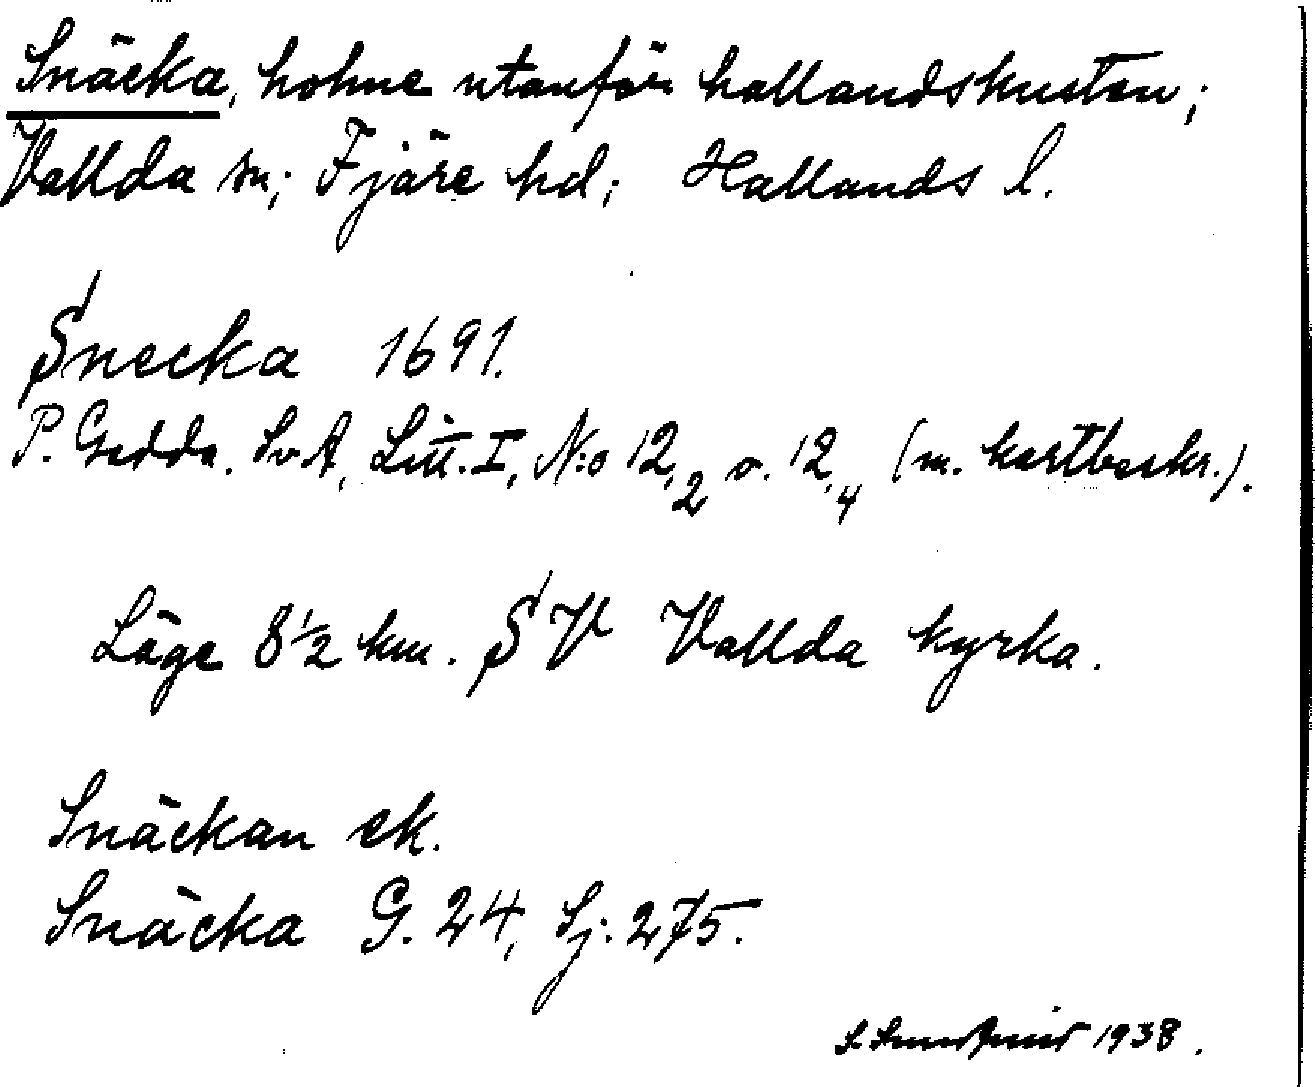 Snäcka, holme utanför hallandskusten;
Vallda sn; Fjäre hd; Hallands l.
Snecka 1691.
P. Gedda. SvA, Litt. I, N:o 12,2 o. 12,4 (m. kortbeskr.).
Läge 8½ km. SV Vallda kyrka.
Snäckan ek.
Snäcka G. 24, Sj. 275.
1938.